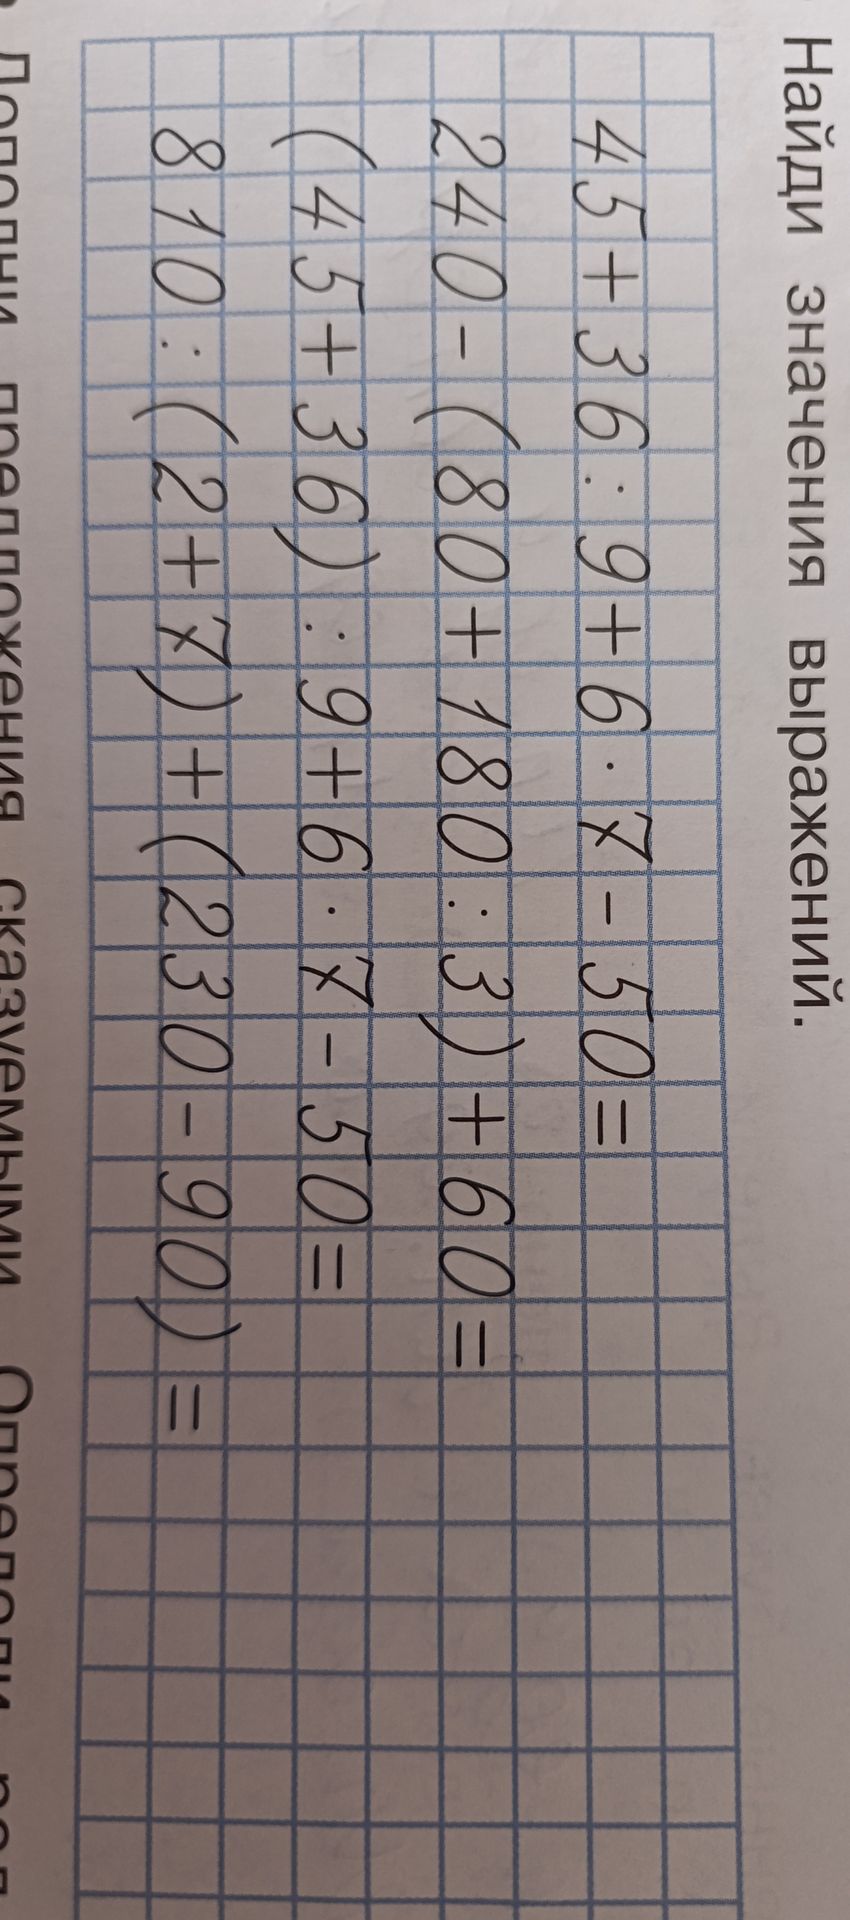 Найди значения выражений.
45+36:9+6·7-50=
240-(80+180:3)+60=
(45+36):9+6·7-50=
810:(2+7)+(230-90)=
предложения сказуемыми. Определи род